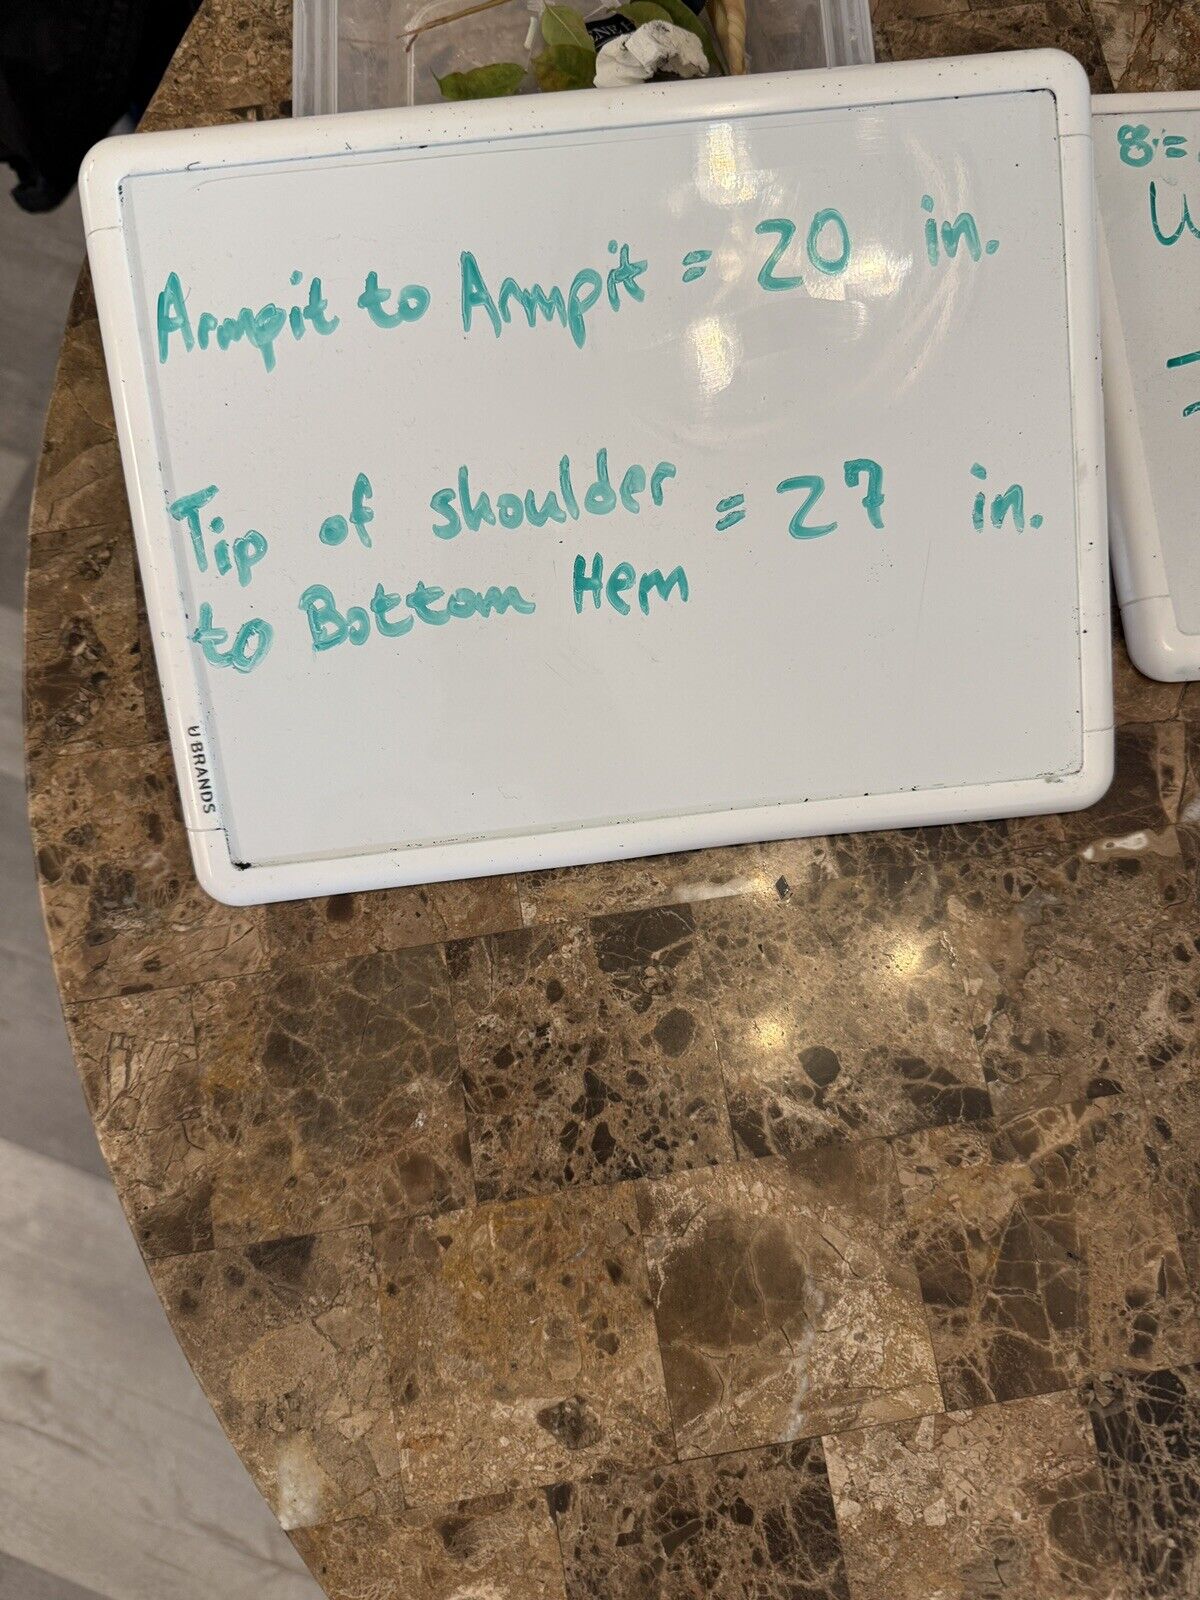 Armpit to Armpit = 20 in.
Tip of shoulder = 27 in.
to Bottom Hem
U BRANDS
8=